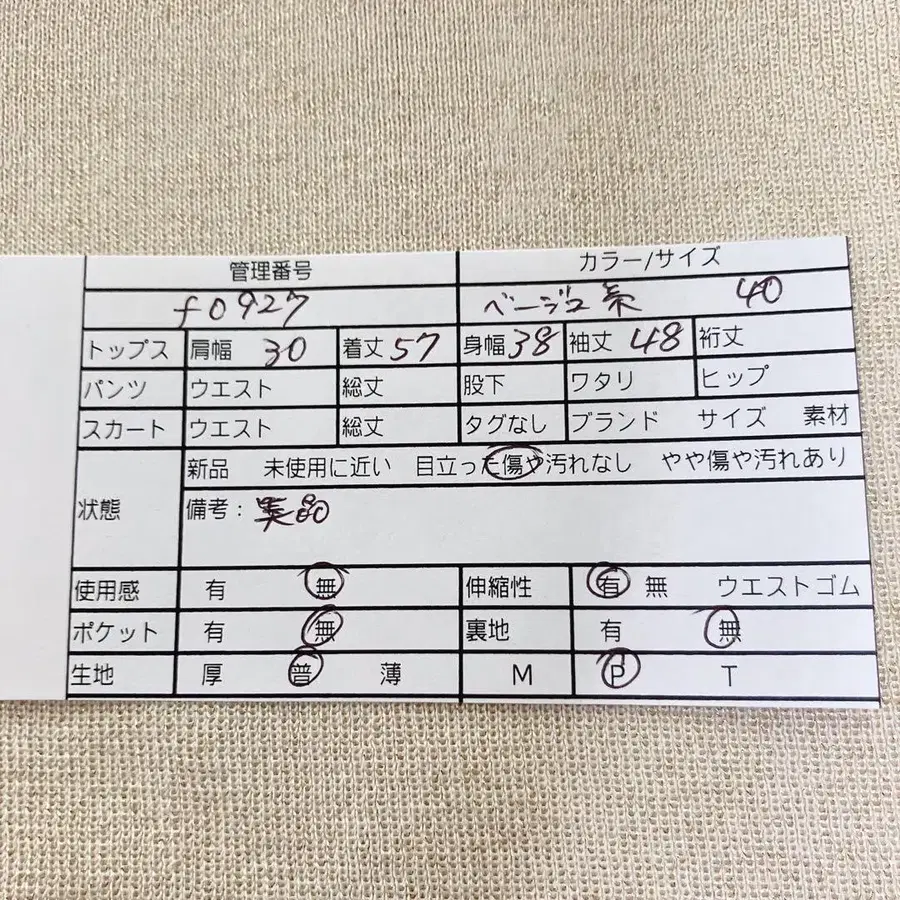 管理番号 カラー/サイズ
f0927 ベージュ系 40
トップス 肩幅 30 着丈 57 身幅 38 袖丈 48 裄丈
パンツ ウエスト 総丈 股下 ワタリ ヒップ
スカート ウエスト 総丈 タグなし ブランド サイズ 素材
状態 新品 未使用に近い 目立った傷や汚れなし やや傷や汚れあり
備考: 美品
使用感 有 無 伸縮性 有 無 ウエストゴム
ポケット 有 無 裏地 有 無
生地 厚 普 薄 M P T